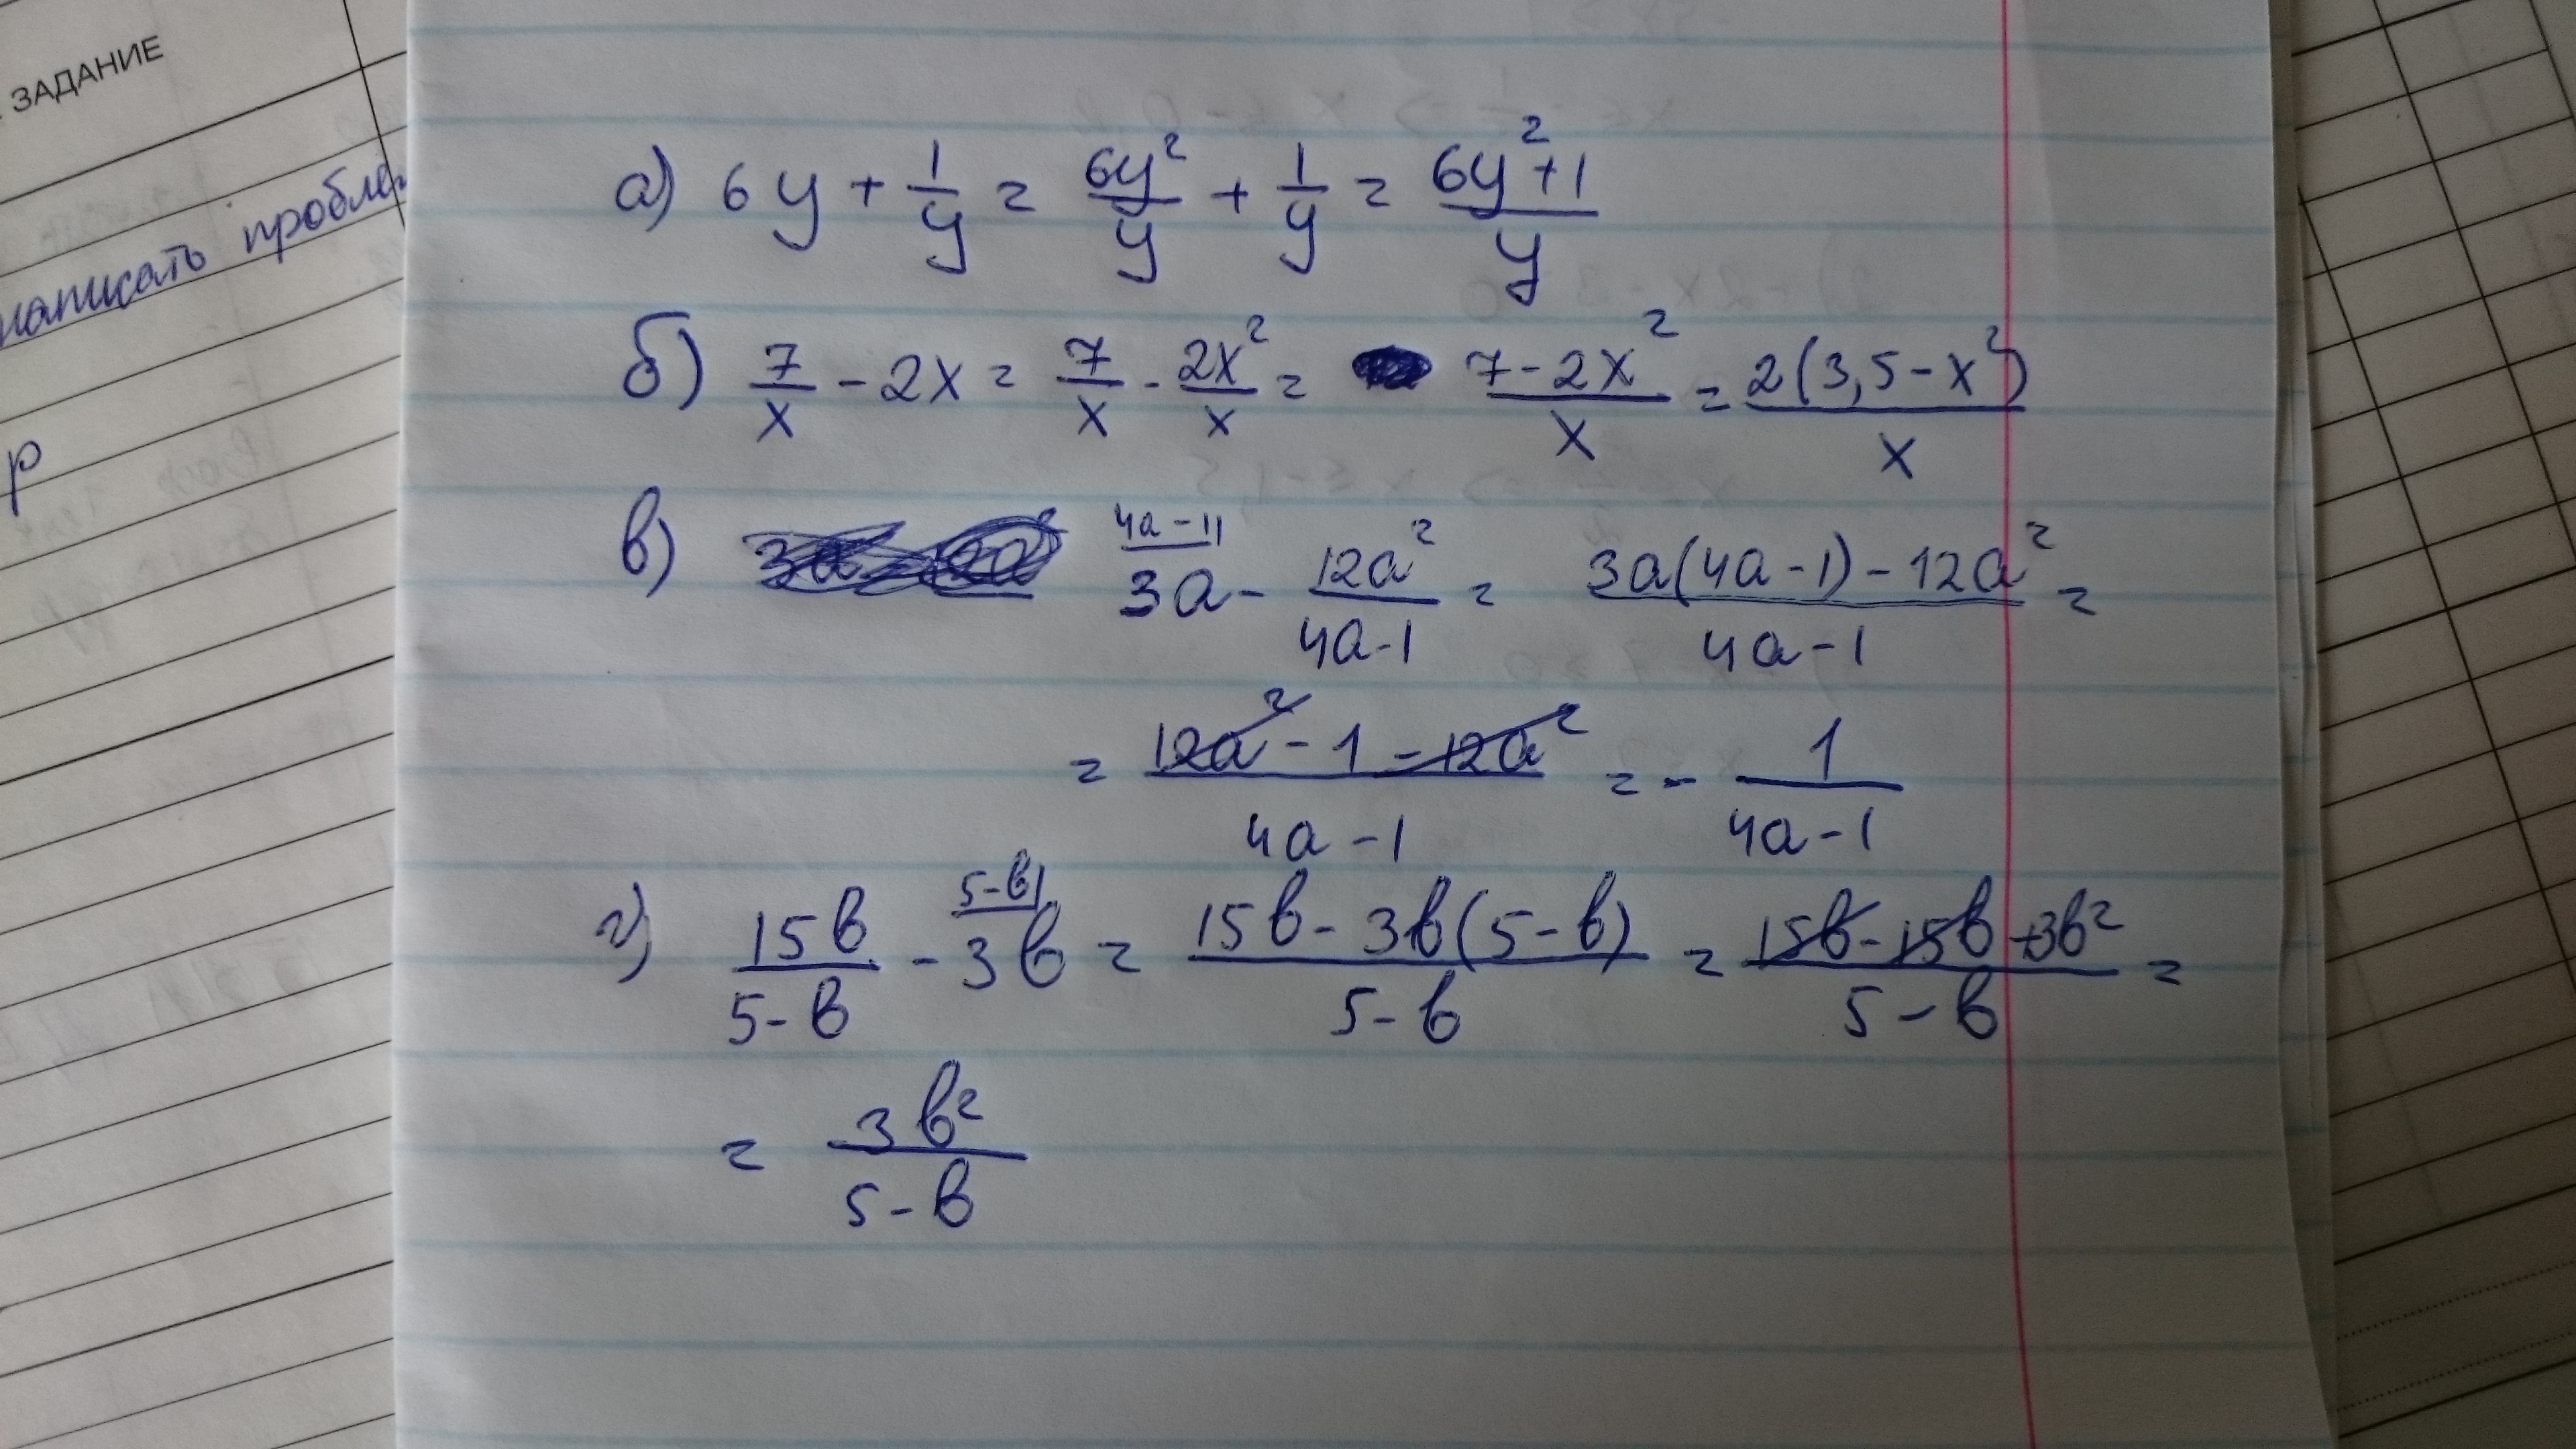 ЗАДАНИЕ
написать
р
а) 6y + 1/y = 6y²/y + 1/y = (6y²+1)/y
б) 7/x - 2x = 7/x - 2x²/x = (7-2x²)/x = 2(3,5-x²)/x
в) 3a^(4a-1) - 12a²/(4a-1) = (3a(4a-1)-12a²)/(4a-1) =
= (12a²-1-12a²)/(4a-1) = - 1/(4a-1)
г) 15b/(5-b) - 3b^(5-b) = (15b-3b(5-b))/(5-b) = (15b-15b+3b²)/(5-b) =
= 3b²/(5-b)